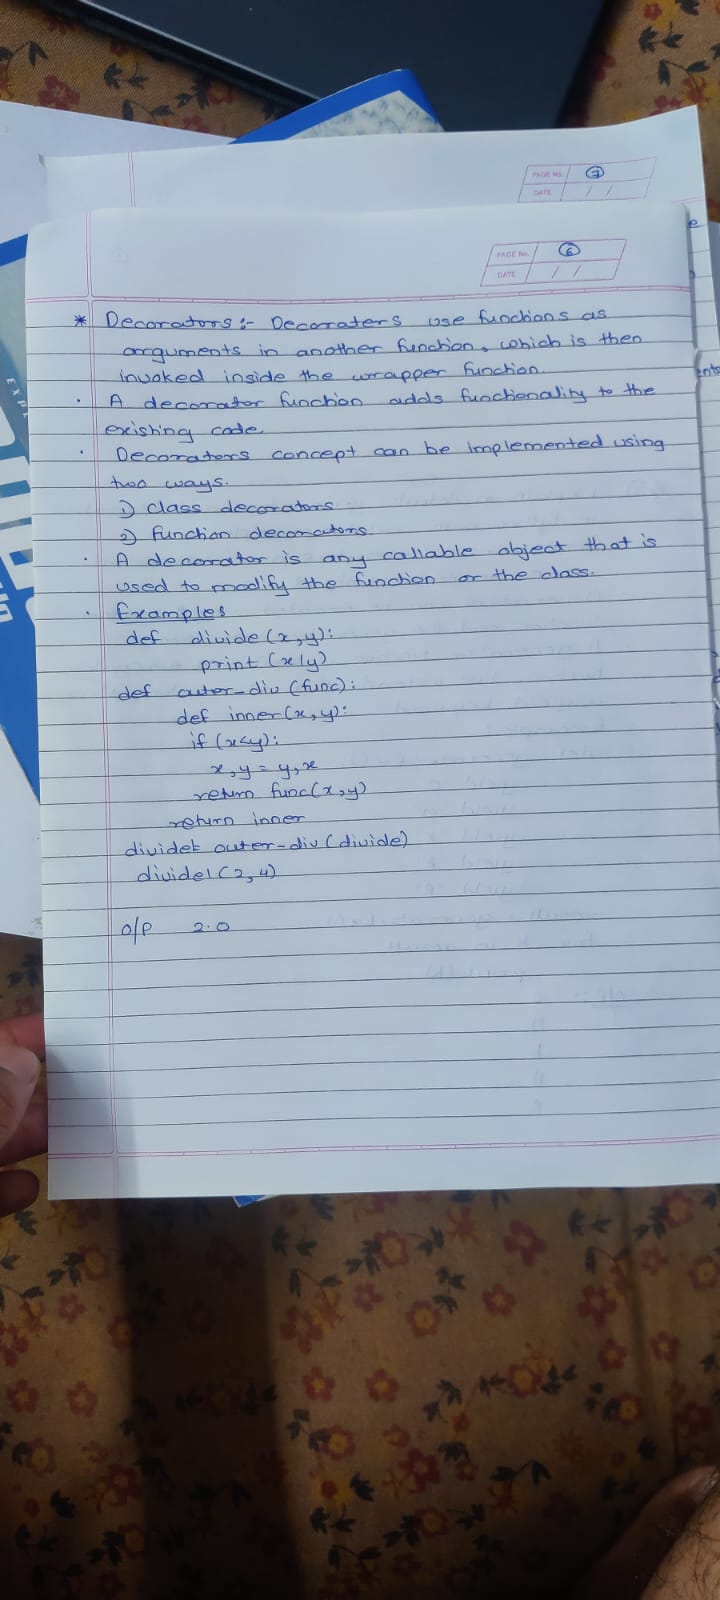 PAGE No. 7
DATE / /
PAGE No. 6
DATE / /
* Decorators :- Decoraters use functions as
arguments in another function, which is then
invoked inside the wrapper function.
· A decorator function adds functionality to the
existing code.
· Decorators concept can be implemented using
two ways.
1) class decorators
2) function decorators.
· A decorator is any callable object that is
used to modify the function or the class.
· Examples
def divide (x,y):
print (x/y)
def outer-div (func):
def inner(x,y):
if (x<y):
x,y = y,x
return func(x,y)
return inner
outer-div (divide)
divide1(2,4)
o/p 2.0